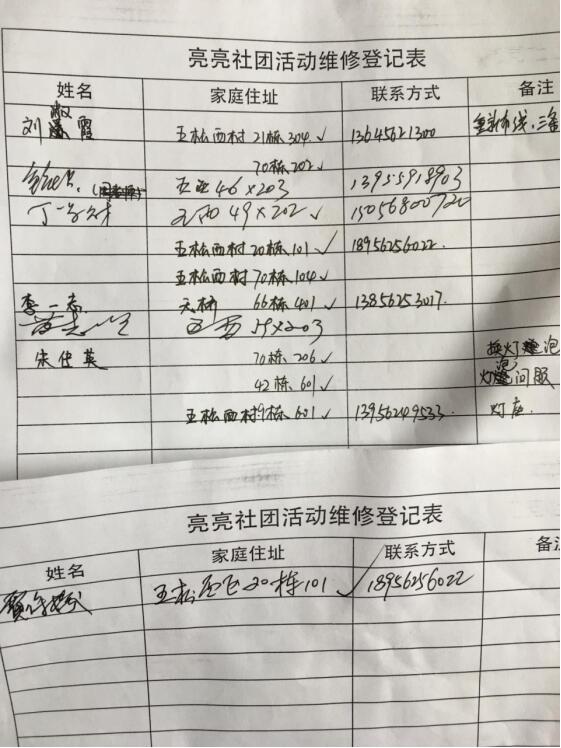 亮亮社团活动维修登记表
姓名 家庭住址 联系方式 备注
刘淑霞 五松西村 21栋304 ✓ 13645621300 重新布线,三备
70栋202 ✓
五西 46×203 13955918903
丁 五西 49×202 ✓ 15056800720
五松西村 20栋101 ✓ 18956256022
五松西村 70栋104 ✓
李一志 天桥 66栋401 ✓ 13856253017
五西 19×203
宋仕英 70栋206 ✓ 换灯泡
42栋601 ✓ 灯泡问题
五松西村9栋601 ✓ 13956249533 灯座
亮亮社团活动维修登记表
姓名 家庭住址 联系方式 备注
五松西区20栋101 ✓ 18956256022